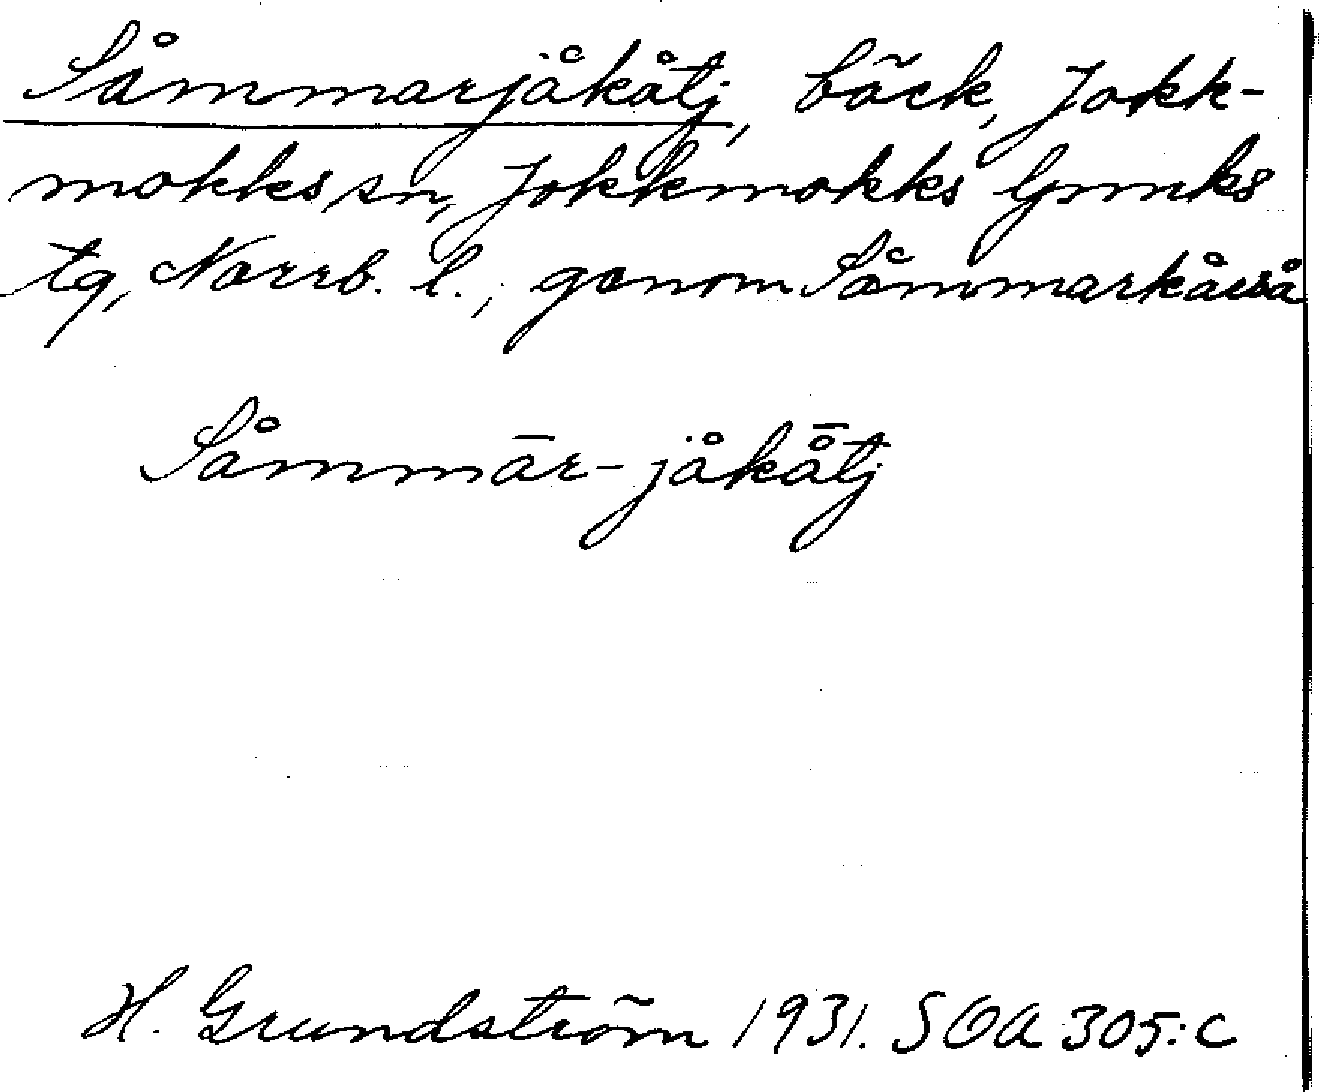 Såmmarjåkåtj, bäck, Jokk-
mokks sn, Jokkmokks
tg, Norrb. l., genom Såmmarkårså
Såmmār-jåkå̄tj
H. Grundström 1931. SOA 305:C